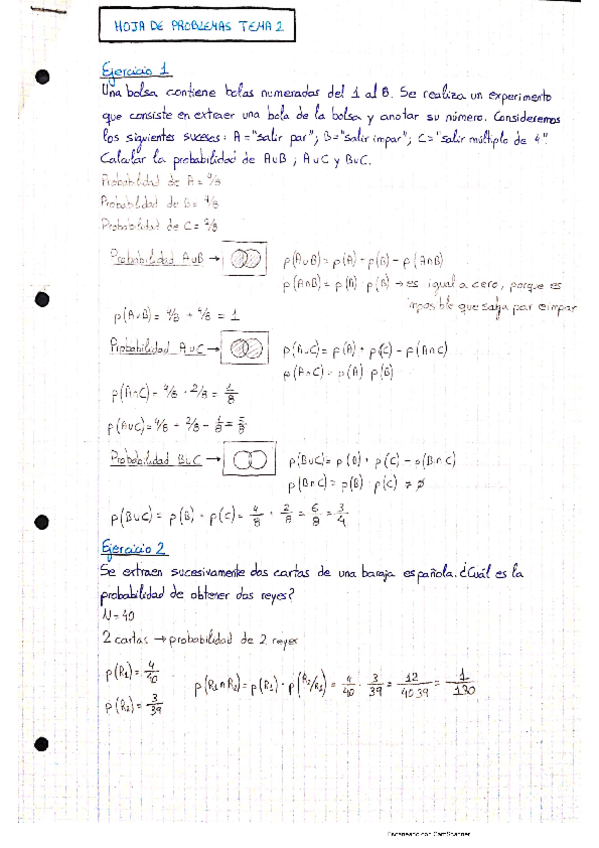 HOJA DE PROBLEMAS TEMA 2
Ejercicio 1
Una bolsa contiene bolas numeradas del 1 al 8. Se realiza un experimento
que consiste en extraer una bola de la bolsa y anotar su número. Consideremos
los siguientes sucesos: A = "salir par"; B = "salir impar"; C = "salir múltiplo de 4".
Calcular la probabilidad de A∪B ; A∪C y B∪C.
Probabilidad de A = 4/8
Probabilidad de B = 4/8
Probabilidad de C = 2/8
Probabilidad A∪B → p(A∪B) = p(A) + p(B) - p(A∩B)
p(A∩B) = p(A) · p(B) → es igual a cero, porque es
imposible que salga par e impar
p(A∪B) = 4/8 + 4/8 = 1
Probabilidad A∪C → p(A∪C) = p(A) + p(C) - p(A∩C)
p(A∩C) = p(A) · p(B)
p(A∩C) = 4/8 · 2/8 = 1/8
p(A∪C) = 4/8 + 2/8 - 1/8 = 5/8
Probabilidad B∪C → p(B∪C) = p(B) + p(C) - p(B∩C)
p(B∩C) = p(B) · p(C)
p(B∪C) = p(B) + p(C) = 4/8 + 2/8 = 6/8 = 3/4
Ejercicio 2
Se extraen sucesivamente dos cartas de una baraja española. ¿Cuál es la
probabilidad de obtener dos reyes?
N = 40
2 cartas → probabilidad de 2 reyes
p(R1) = 4/40
p(R1∩R2) = p(R1) · p(R2/R1) = 4/40 · 3/39 = 12/40·39 = 1/130
p(R2) = 3/39
Escaneado con CamScanner